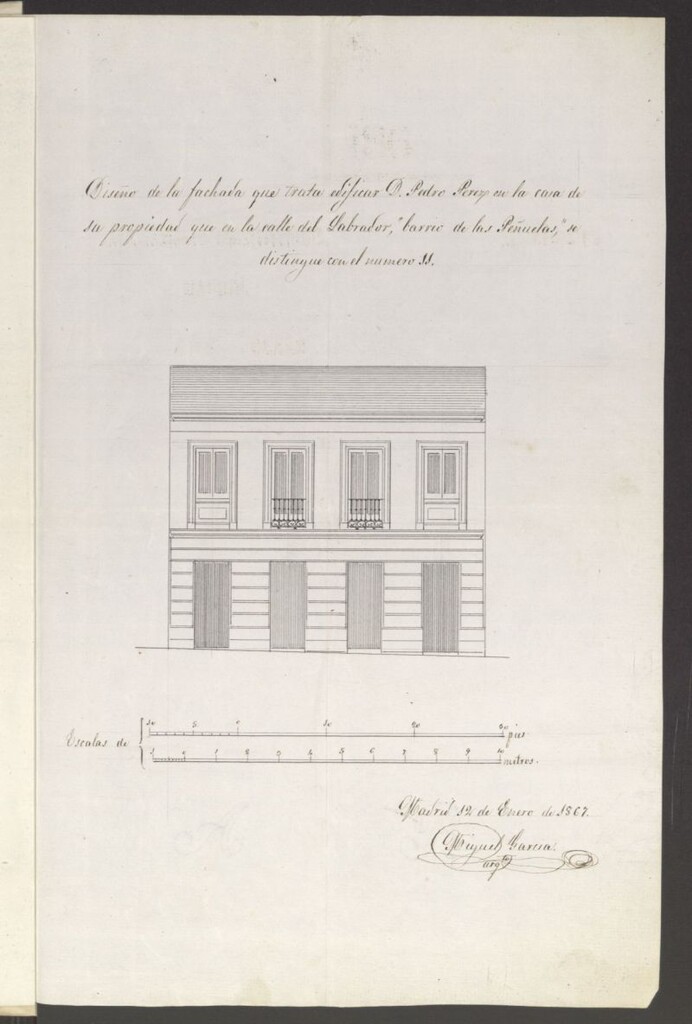 Diseño de la fachada que trata edificar D. Pedro Perez en la casa de
su propiedad que en la calle del Labrador, "barrio de las Peñuelas," se
distingue con el numero 11.
10 5 0 10 20 30 pies.
Escalas de
1 0 1 2 3 4 5 6 7 8 9 10 metros.
Madrid 12 de Enero de 1867.
Miguel Garcia.
arqto